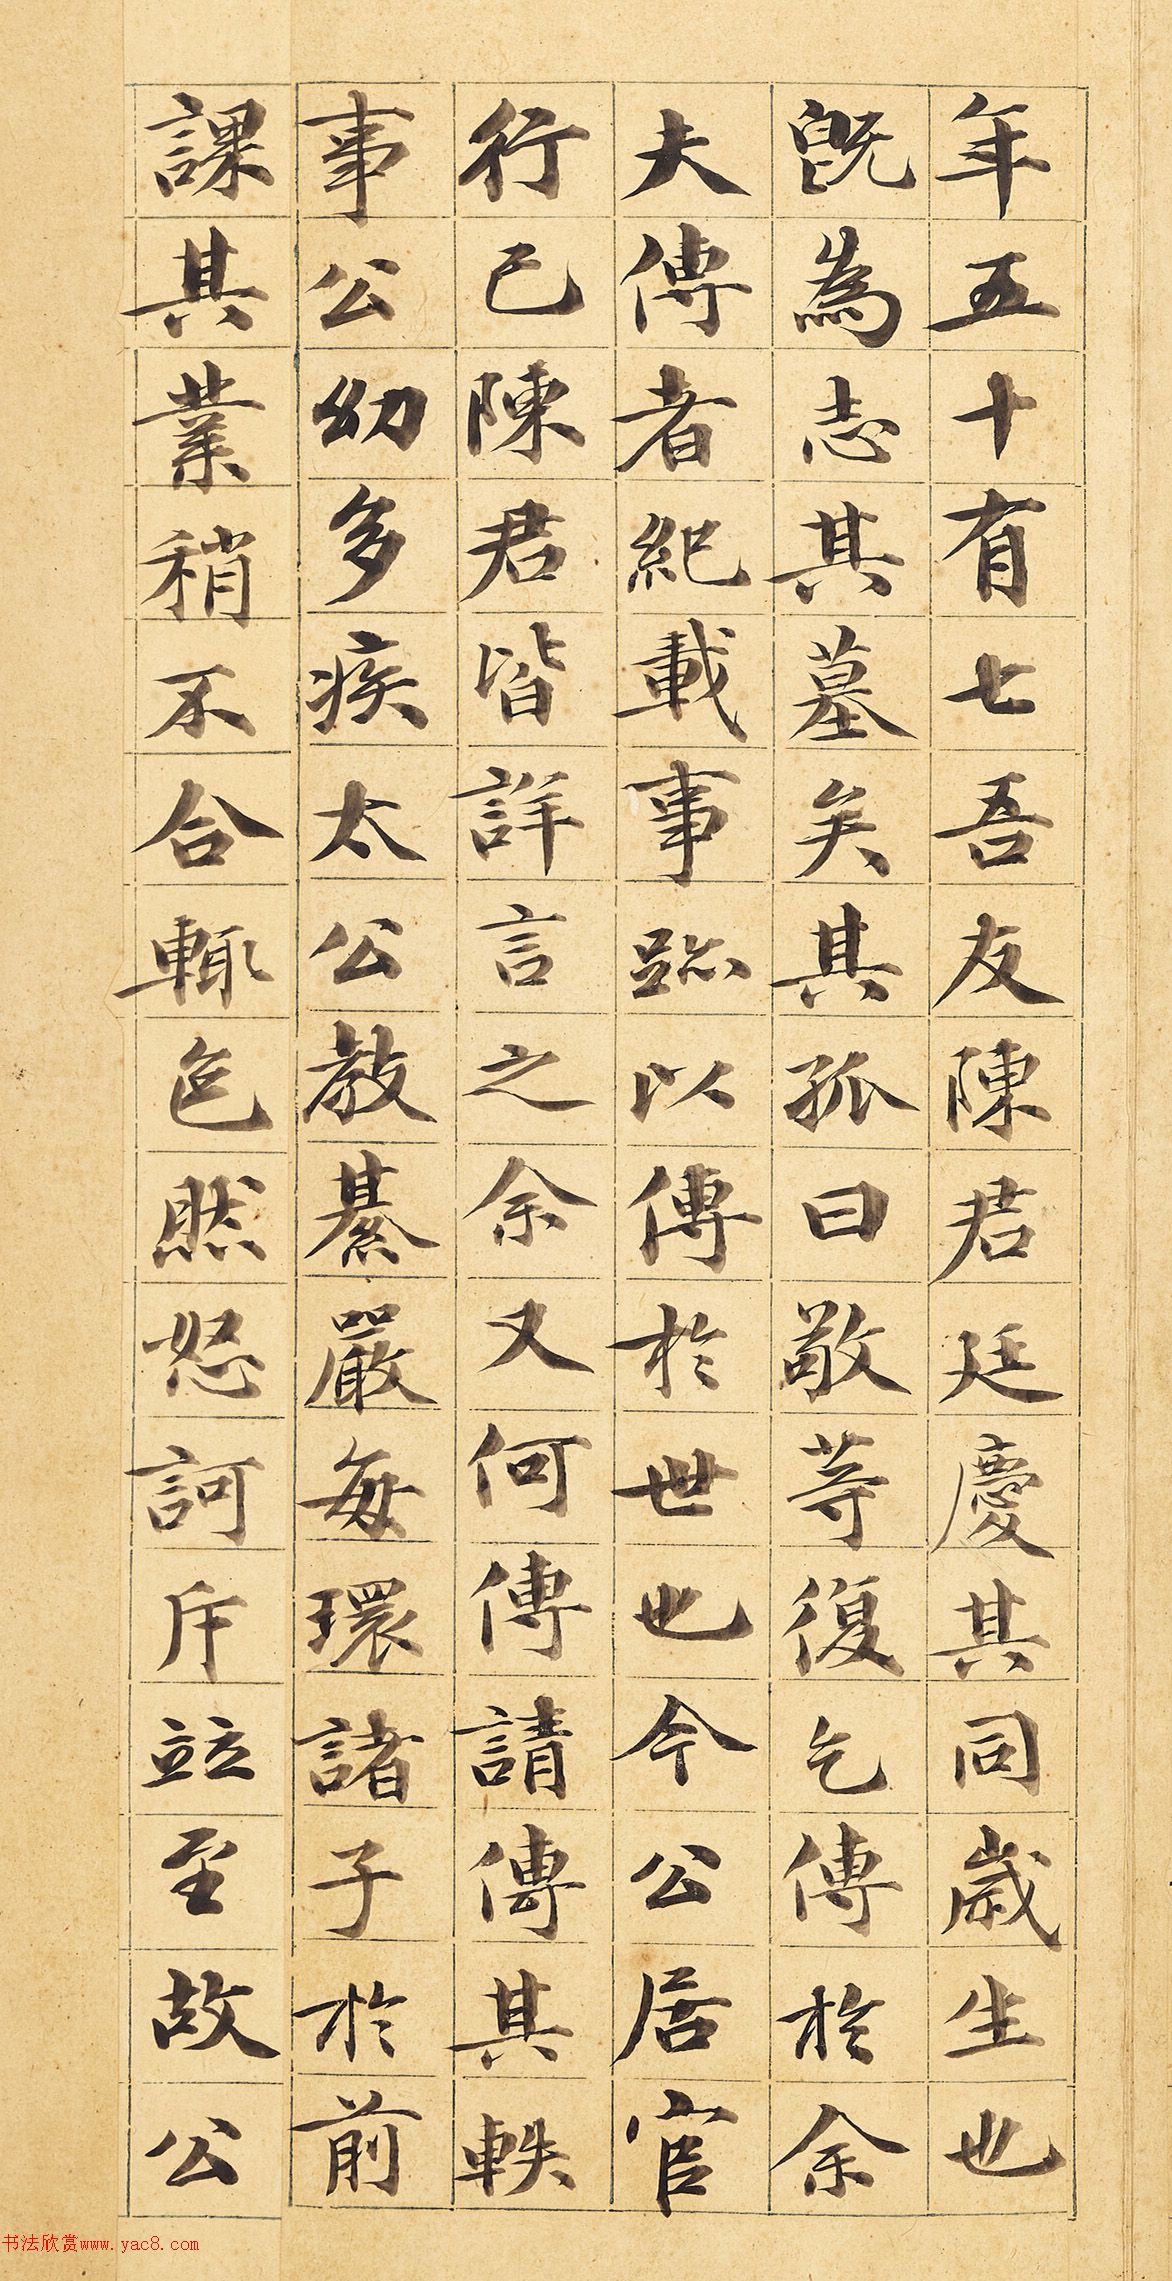 年五十有七吾友陳君廷慶其同歲生也
既為志其墓矣其孤曰敬等復乞傳於余
夫傳者紀載事跡以傳於世也今公居官
行己陳君皆詳言之余又何傳請傳其軼
事公幼多疾太公教綦嚴每環諸子於前
課其業稍不合輒色然怒訶斥竝至故公
书法欣赏www.yac8.com